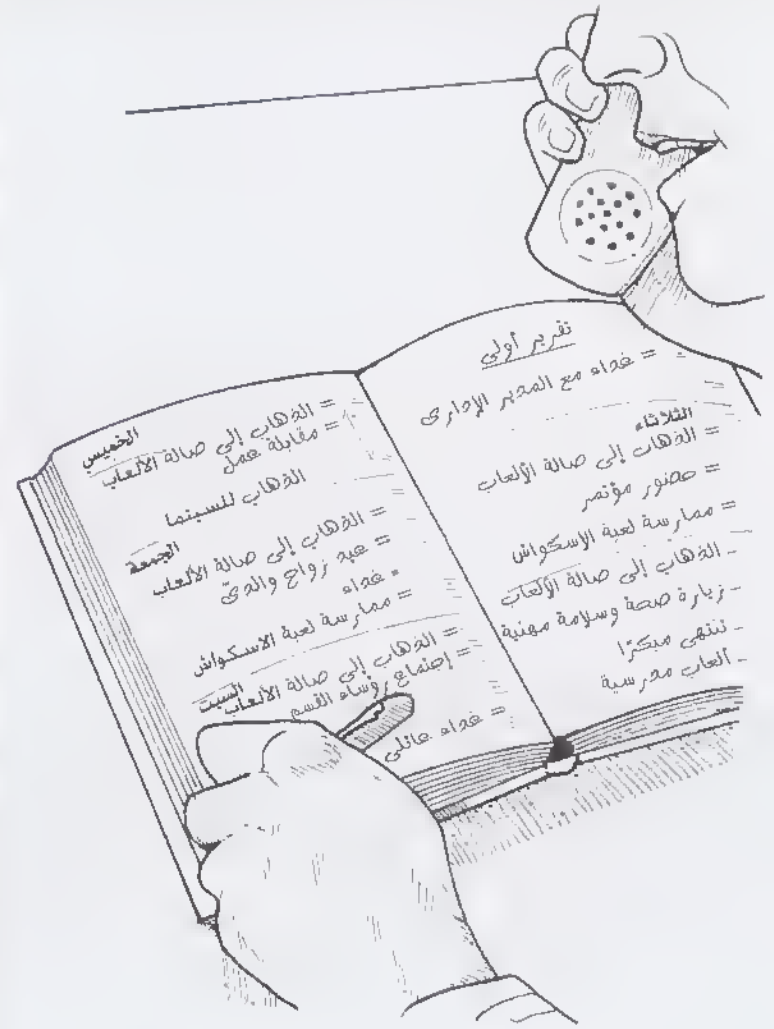 تقرير أولى
= غداء مع المدير الإدارى
الثلاثاء
= الذهاب إلى صالة الألعاب
= حضور مؤتمر
= ممارسة لعبة الإسكواش
- الذهاب إلى صالة الألعاب
- زيارة صحة وسلامة مهنية
- ننتهى مبكرًا
- ألعاب مدرسية
الخميس
= الذهاب إلى صالة الألعاب
= مقابلة عمل
الذهاب للسينما
الجمعة
= الذهاب إلى صالة الألعاب
= عيد زواج والدىّ
غداء
= ممارسة لعبة الاسكواش
السبت
= الذهاب إلى صالة الألعاب
= إجتماع روساء القسم
= غداء عائلى